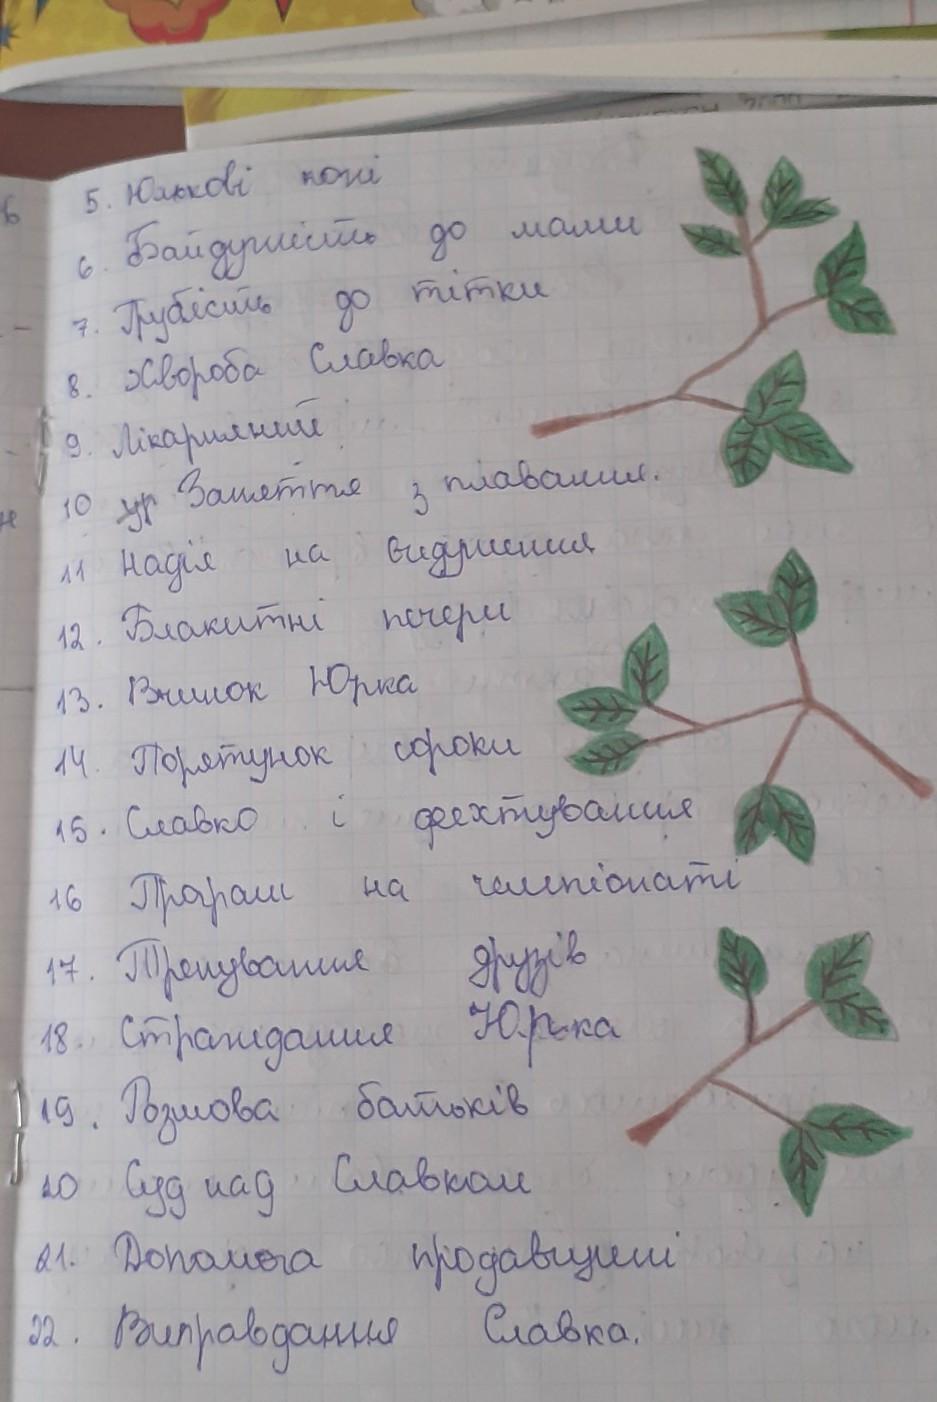 5. Юлькові поні
6. Байдужість до мами
7. Грубість до тітки
8. Хвороба Славка
9. Лікарняний
10 Заняття з плавання.
11 Надія на видужання
12. Блакитні печери
13. Вчинок Юрка
14. Порятунок сороки
15. Славко і фехтування
16 Програш на чемпіонаті
17. Тренування друзів
18. Страждання Юрка
19. Розмова батьків
20 Суд над Славком
21. Допомога продавщині
22. Виправдання Славка.